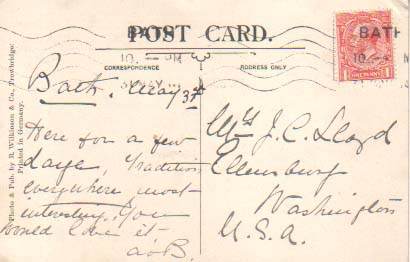 POST CARD.
BATH
10.— PM
BATH
10.—
CORRESPONDENCE
ADDRESS ONLY
Photo & Pub. by R. Wilkinson & Co., Trowbridge.
Printed in Germany.
Bath. May 3
Here for a few
days, Tradition
everywhere most
interesting. You
would love it
J. C. Lloyd
Ellensburg
Washington
U.S.A.